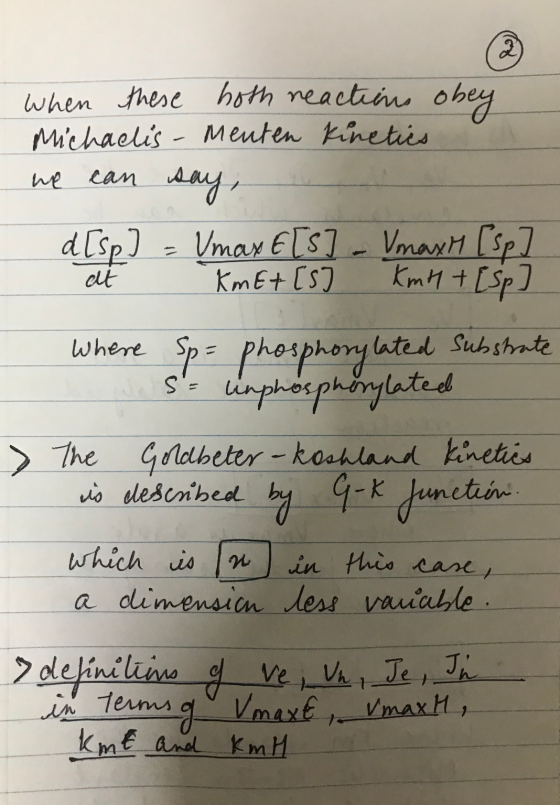 2
When these both reactions obey
Michaelis - Menten Kinetics
we can say,
d[Sp]/dt = VmaxE[S]/KmE+[S] - VmaxH[Sp]/KmH+[Sp]
Where Sp = phosphorylated Substrate
S = unphosphorylated
> The Goldbeter-Koshland kinetics
is described by G-K function.
Which is x in this case,
a dimension less variable.
> definitions of Ve, Vh, Je, Jh
in Terms of VmaxE, VmaxH,
KmE and KmH